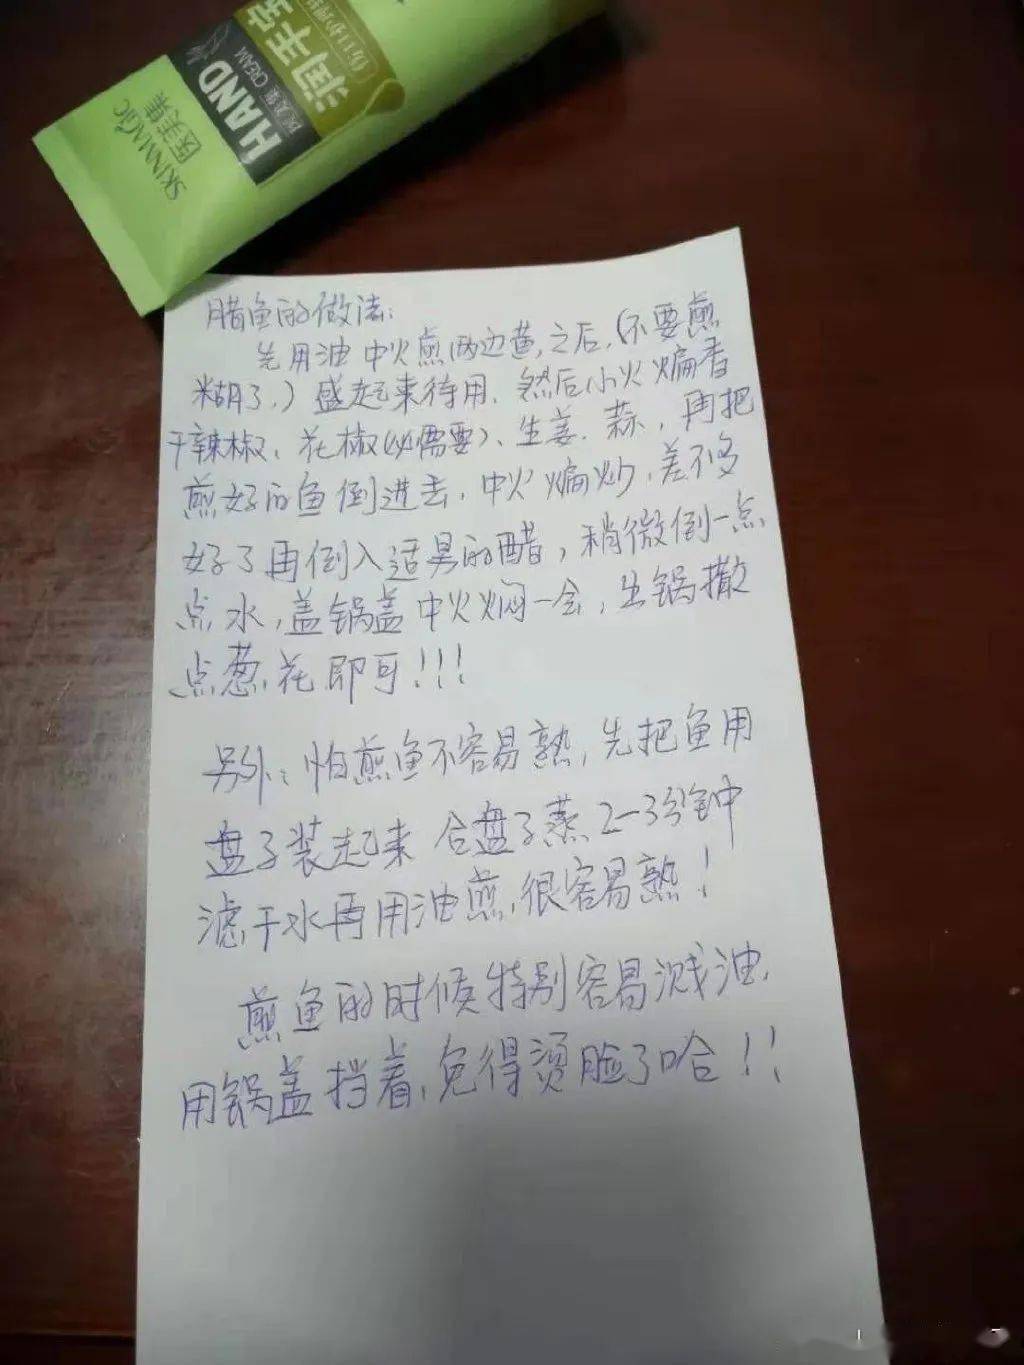 SKINMAGIC
医美集
HAND
CREAM
润手
腊鱼的做法:
先用油中火煎两边黄,之后,(不要煎
糊了.)盛起来待用.然后小火煸香
干辣椒、花椒(必需要)、生姜.蒜,再把
煎好的鱼倒进去,中火煸炒,差不多
好了再倒入适男的醋,稍微倒一点
点水,盖锅盖中火焖一会,出锅撒
点葱花即可!!!
另外:怕煎鱼不容易熟,先把鱼用
盘子装起来 合盘子蒸2-3分钟
滤干水再用油煎,很容易熟!
煎鱼的时候特别容易溅油,
用锅盖挡着,免得烫脸了哈!!